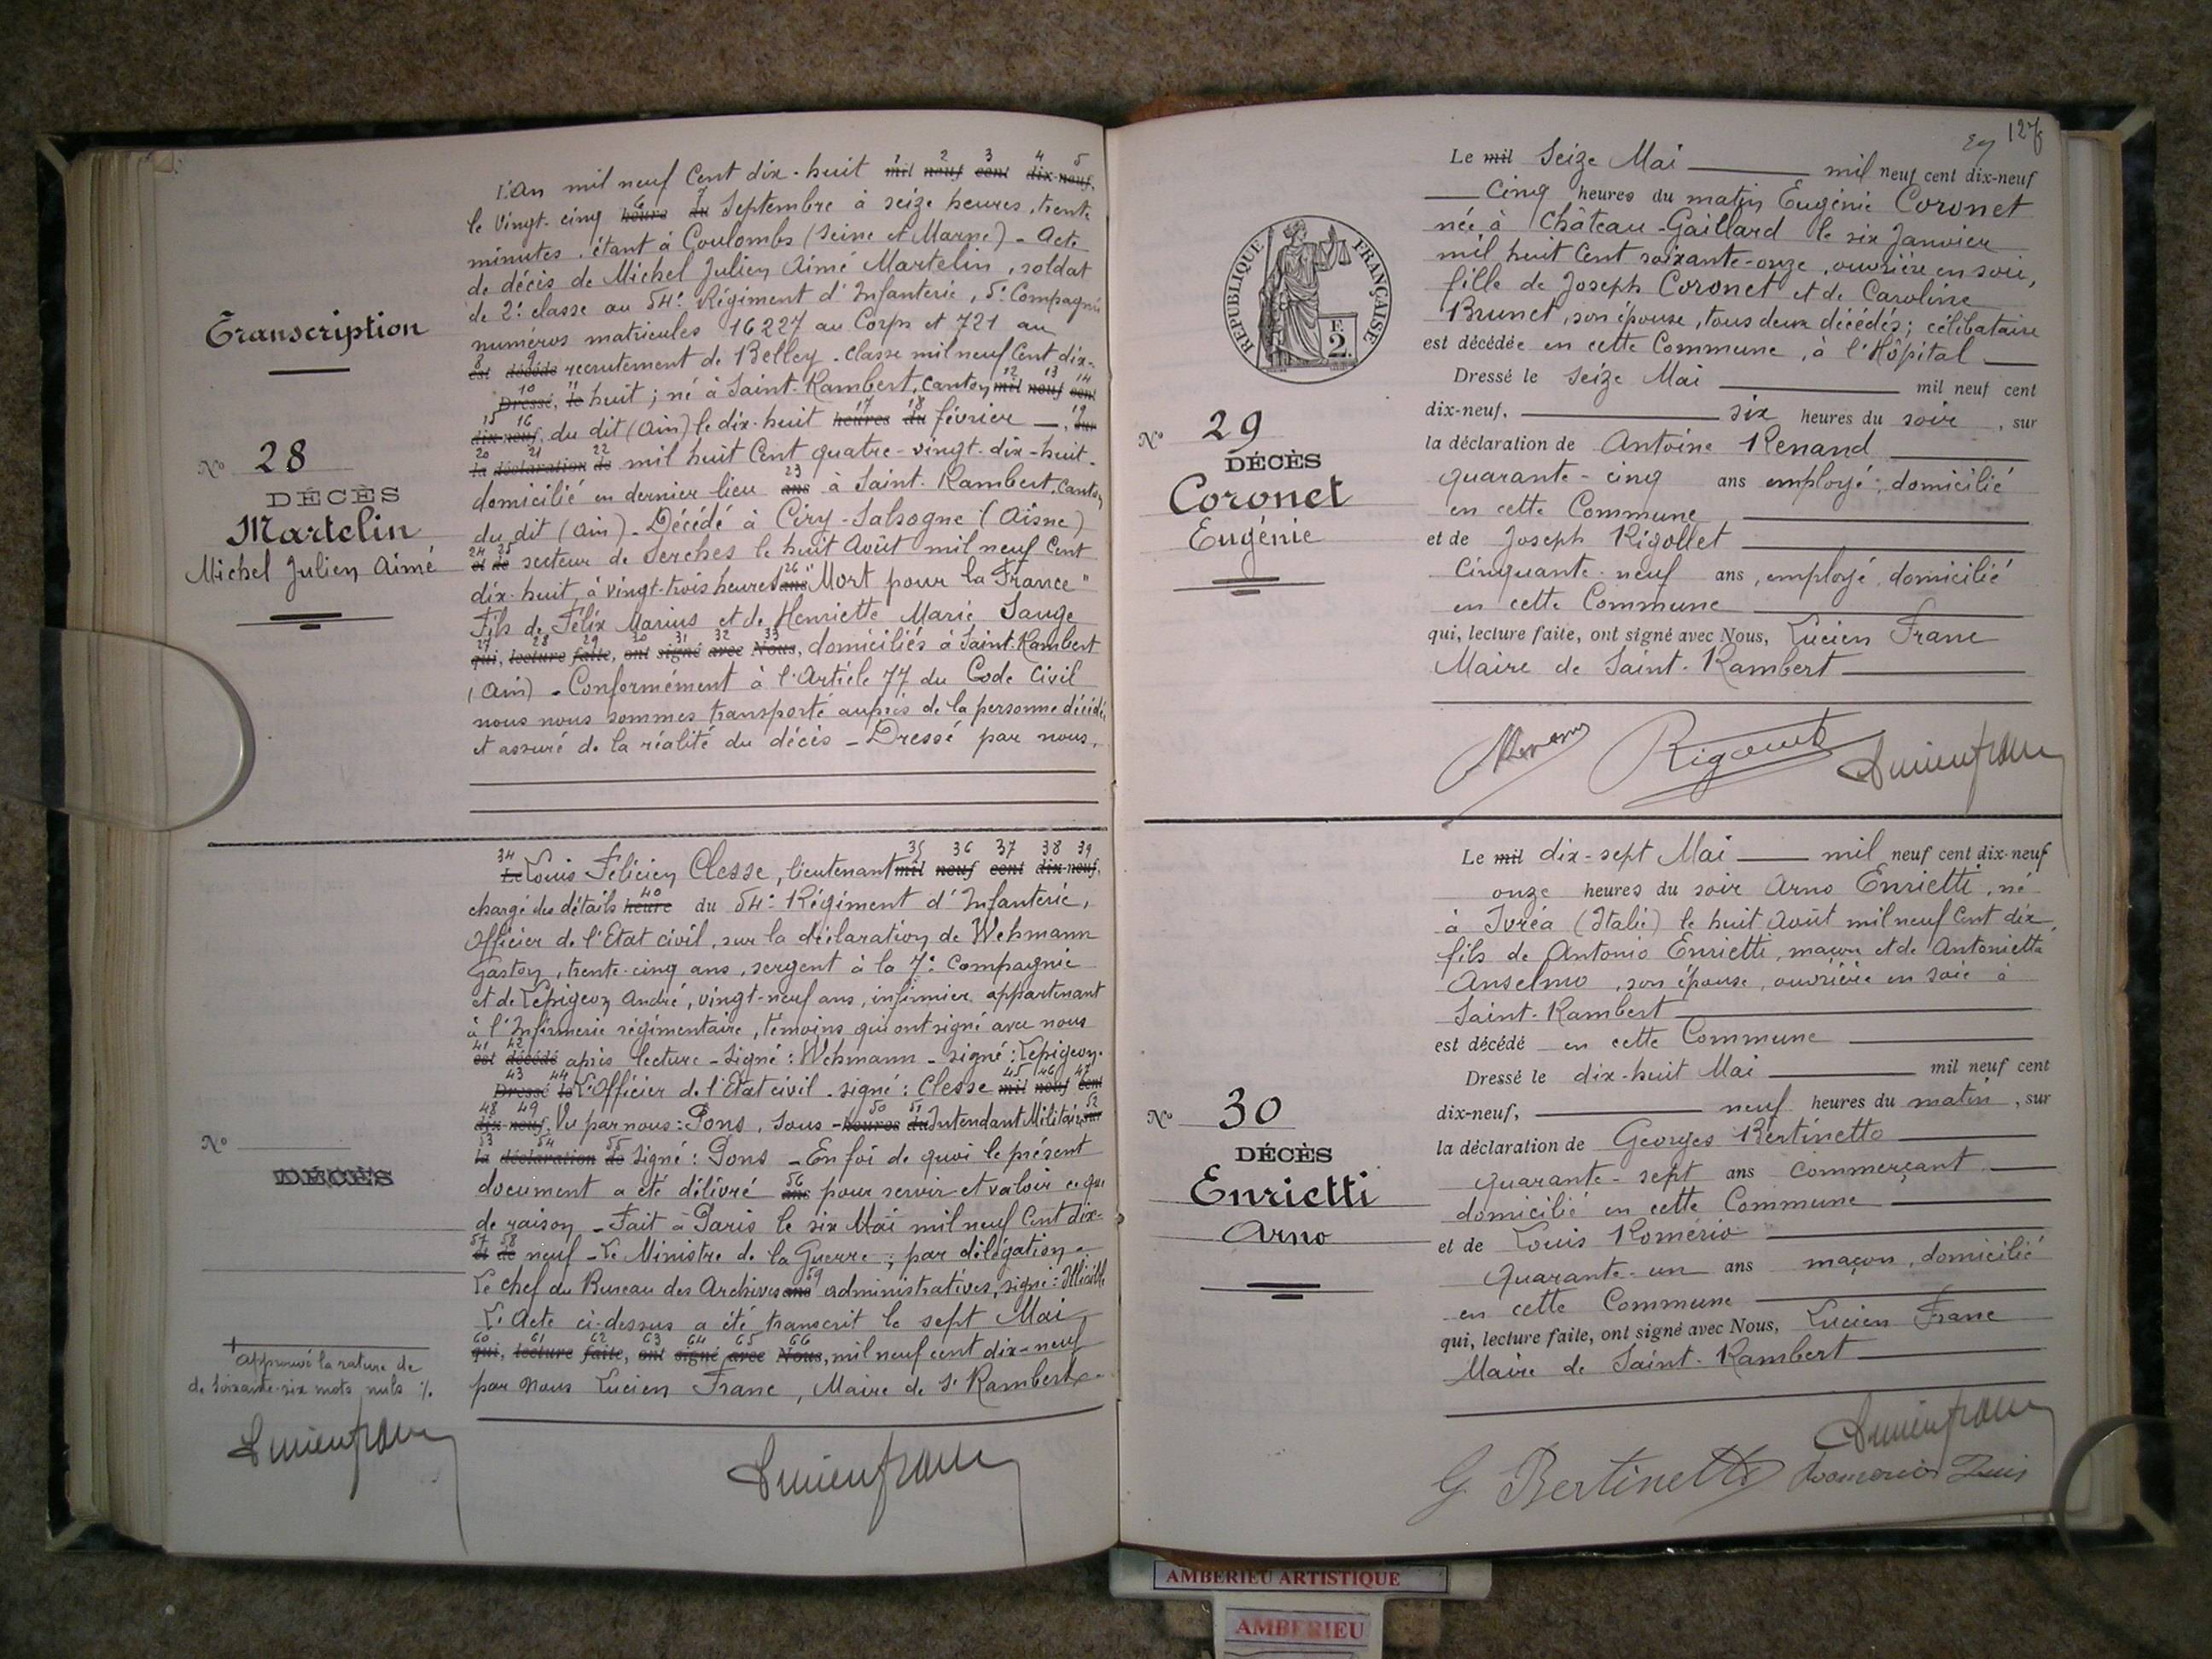 Transcription
N° 28
DÉCÈS
Martelin
Michel Julien Aimé
L'An mil neuf Cent dix-huit mil nouf cent dix-neuf,
1 2 3 4 5
le Vingt-cinq heure du Septembre à seize heures, trente
6 7
minutes, étant à Coulombs (Seine et Marne) - Acte
de décès de Michel Julien Aimé Martelin, soldat
de 2e classe au 54e Régiment d'Infanterie, 5e Compagnie
numéros matricules 16227 au Corps et 721 au
8 9
est décédé recrutement de Belley - Classe mil neuf Cent dix-
10 11 12 13 14
Dressé, le huit ; né à Saint-Rambert, canton mil neuf cent
15 16 17 18 19
dix-neuf, du dit (Ain) le dix-huit heures du février —, sur
20 21 22
la déclaration de mil huit Cent quatre-vingt-dix-huit -
23
domicilié en dernier lieu ans à Saint-Rambert, Canton
du dit (Ain) - Décédé à Ciry-Salsogne (Aisne)
24 25
et de secteur de Serches le huit Août mil neuf Cent
26
dix-huit, à vingt-trois heures ans "Mort pour la France"
Fils de Félix Marius et de Henriette Marie Sauge
27 28 29 30 31 32 33
qui, lecture faite, ont signé avec Nous, domiciliés à Saint-Rambert
(Ain) - Conformément à l'Article 77 du Code Civil
nous nous sommes transporté auprès de la personne décédée
et assuré de la réalité du décès - Dressé par nous,
N°
DÉCÈS
34 35 36 37 38 39
Le Louis Félicien Clesse, lieutenant mil neuf cent dix-neuf,
40
chargé des détails heure du 54e Régiment d'Infanterie,
Officier de l'Etat civil, sur la déclaration de Wehmann
Gaston, trente-cinq ans, sergent à la 7e Compagnie
et de Lepigeon André, vingt-neuf ans, infirmier appartenant
à l'Infirmerie régimentaire, témoins qui ont signé avec nous
41 42
est décédé après lecture - Signé : Wehmann - signé : Lepigeon -
43 44 45 46 47
Dressé le L'Officier de l'Etat civil - signé : Clesse mil neuf cent
48 49 50 51 52
dix-neuf, Vu par nous : Pons, Sous - heures du Intendant Militaire, sur
53 54 55
la déclaration de Signé : Pons - En foi de quoi le présent
56
document a été délivré ans pour servir et valoir ce que
de raison - Fait à Paris le six Mai mil neuf Cent dix-
57 58
et de neuf - Le Ministre de la Guerre ; par délégation -
59
Le chef du Bureau des Archives ans administratives, signé : Illisible
L'Acte ci-dessus a été transcrit le sept Mai
60 61 62 63 64 65 66
qui, lecture faite, ont signé avec Nous, mil neuf cent dix-neuf
par nous Lucien Franc, Maire de St Rambert
Approuvé la rature de
de soixante-six mots nuls
Lucien Franc
Lucien Franc
127
RÉPUBLIQUE FRANÇAISE
E
2.
N° 29
DÉCÈS
Coronet
Eugénie
Le mil Seize Mai mil neuf cent dix-neuf
Cinq heures du matin Eugénie Coronet
née à Château-Gaillard le six Janvier
mil huit Cent soixante-onze, ouvrière en soie,
fille de Joseph Coronet et de Caroline
Brunet, son épouse, tous deux décédés ; célibataire
est décédée en cette Commune, à l'Hôpital
Dressé le Seize Mai mil neuf cent
dix-neuf, six heures du soir, sur
la déclaration de Antoine Renand
quarante-cinq ans employé, domicilié
en cette Commune
et de Joseph Rigollet
Cinquante-neuf ans, employé, domicilié
en cette Commune
qui, lecture faite, ont signé avec Nous, Lucien Franc
Maire de Saint-Rambert
Lucien Franc
N° 30
DÉCÈS
Enrietti
Arno
Le mil dix-sept Mai mil neuf cent dix-neuf
onze heures du soir Arno Enrietti, né
à Ivréa (Italie) le huit Août mil neuf Cent dix,
fils de Antonio Enrietti, maçon et de Antonietta
Anselmo, son épouse, ouvrière en soie à
Saint-Rambert
est décédé en cette Commune
Dressé le dix-huit Mai mil neuf cent
dix-neuf, neuf heures du matin, sur
la déclaration de Georges Bertinetto
quarante-sept ans Commerçant
domicilié en cette Commune
et de Louis Romério
Quarante-un ans maçon, domicilié
en cette Commune
qui, lecture faite, ont signé avec Nous, Lucien Franc
Maire de Saint-Rambert
Lucien Franc
G Bertinetto Romerio Luis
AMBERIEU ARTISTIQUE
AMBERIEU